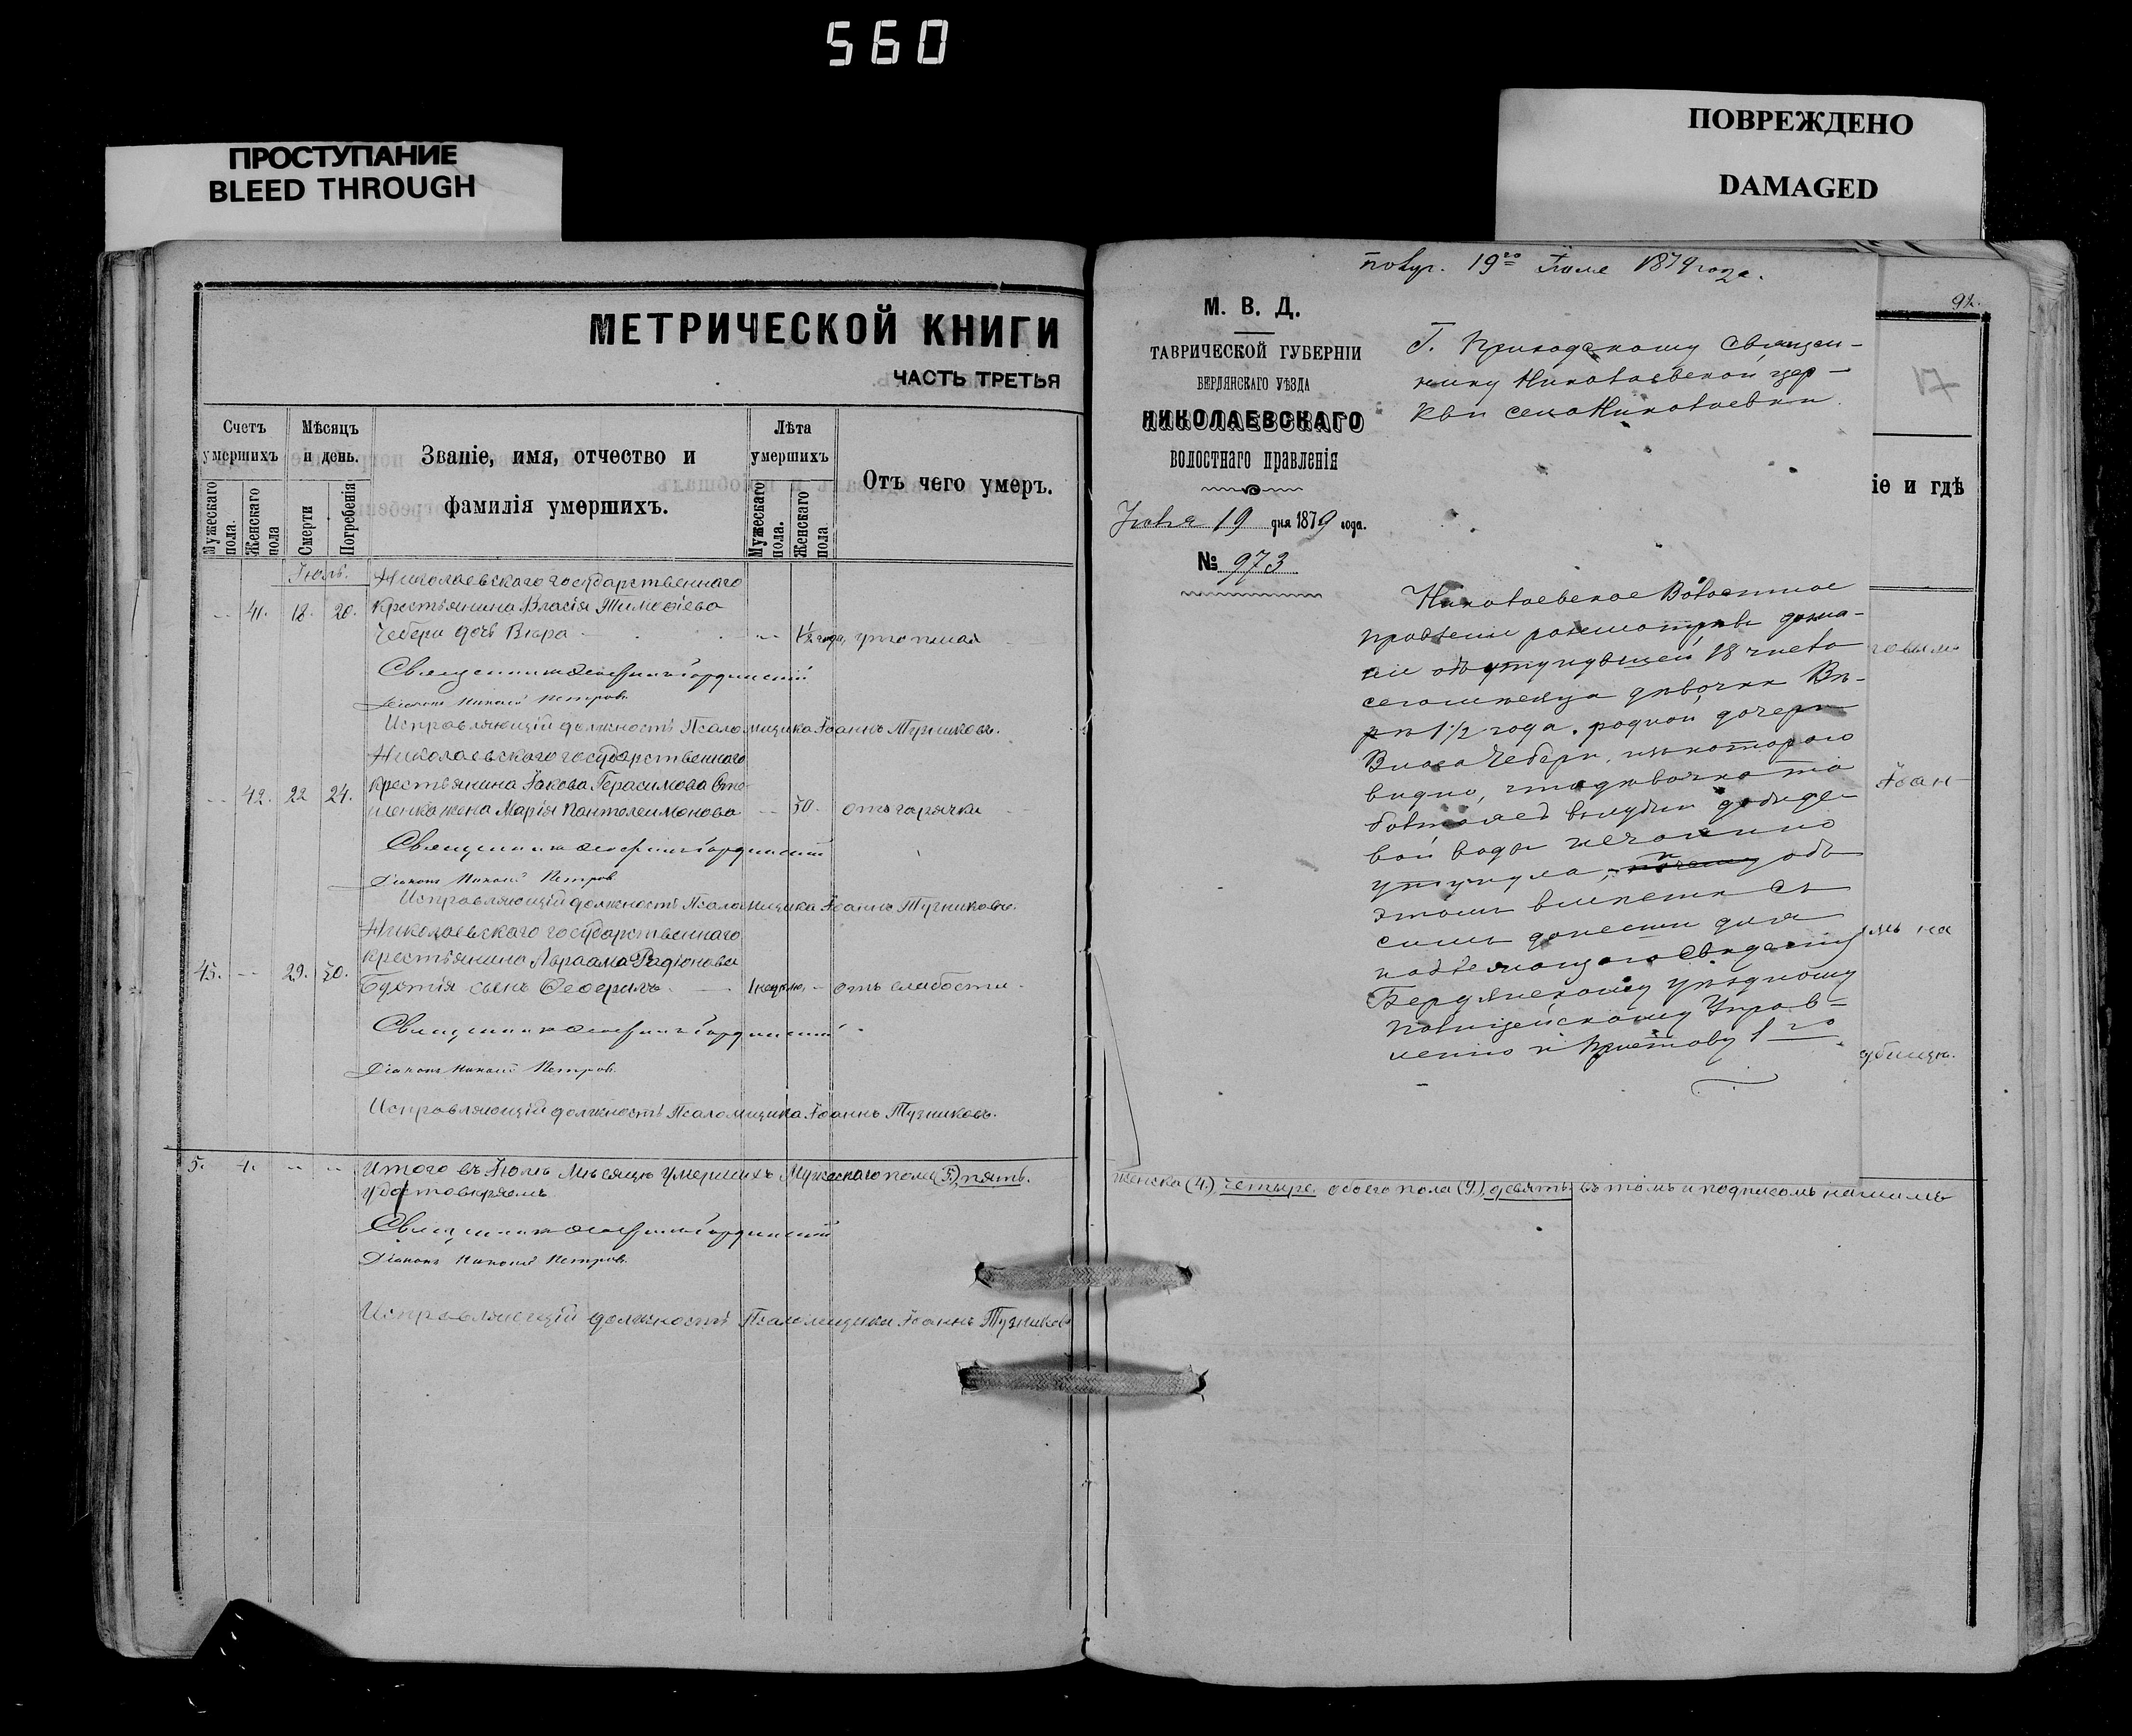 560
ПРОСТУПАНИЕ
BLEED THROUGH
ПОВРЕЖДЕНО
DAMAGED
МЕТРИЧЕСКОЙ КНИГИ
ЧАСТЬ ТРЕТЬЯ
Счетъ умершихъ
Мужескаго пола.
Женскаго пола
Мѣсяцъ и день.
Смерти
Погребенія
Званіе, имя, отчество и
фамилія умершихъ.
Лѣта умершихъ
Мужескаго пола.
Женскаго пола
Отъ чего умеръ.
Іюль. Николаевскаго государственнаго
41. 18. 20. крестьянина Власія Тимофіева
Чебери дочь Вѣра 1½ года утопшая
Священникъ
Діаконъ Никаній Петровъ
Исправляющій должность Псаломщика Іоаннъ Тузниковъ.
Николаевскаго государственнаго
42. 22 24. крестьянина Іакова Герасимова
жена Марія Пантелеимонова 50. отъ горячки
Священникъ
Діаконъ Никаній Петровъ
Исправляющій должность Псаломщика Іоаннъ Тузниковъ.
Николаевскаго государственнаго
крестьянина Авраама Радіонова
45. 29. 30. сынъ Ѳеофилъ 1 недѣля отъ слабости
Священникъ
Діаконъ Никаній Петровъ
Исправляющій должность Псаломщика Іоаннъ Тузниковъ.
5. 4. Итого въ Іюлѣ мѣсяцѣ умершихъ Мужескаго пола (5) пять.
женска (4.) четыре. обоего пола (9.) девять. въ томъ и подписомъ нашимъ
удостовѣряемъ
Священникъ
Діаконъ Никаній Петровъ
Исправляющій должность Псаломщика Іоаннъ Тузниковъ
19го Іюля 1879 года.
М. В. Д.
ТАВРИЧЕСКОЙ ГУБЕРНІИ
БЕРДЯНСКАГО УѢЗДА
НИКОЛАЕВСКАГО
волостнаго правленія
Іюля 19 дня 1879 года.
№ 973
Г. Приходскому Священ-
нику Николаевской цер-
кви села Николаевки.
Николаевское Волостное
правленіе разсмотрѣвъ дозна-
ніе объ утонувшей 18 числа
сего мѣсяца дѣвочки Вѣ-
ры 1 1/2 года, родной дочери
Власа Чебери, изъ котораго
видно, что дѣвочка та
вой воды нечаянно
утонула, объ
этомъ вмѣстѣ съ
симъ донести для
надлежащаго
Бердянскому уѣздному
Полицейскому Управ-
ленію и Приставу 1го
92.
17
іе и гдѣ
Іоан-